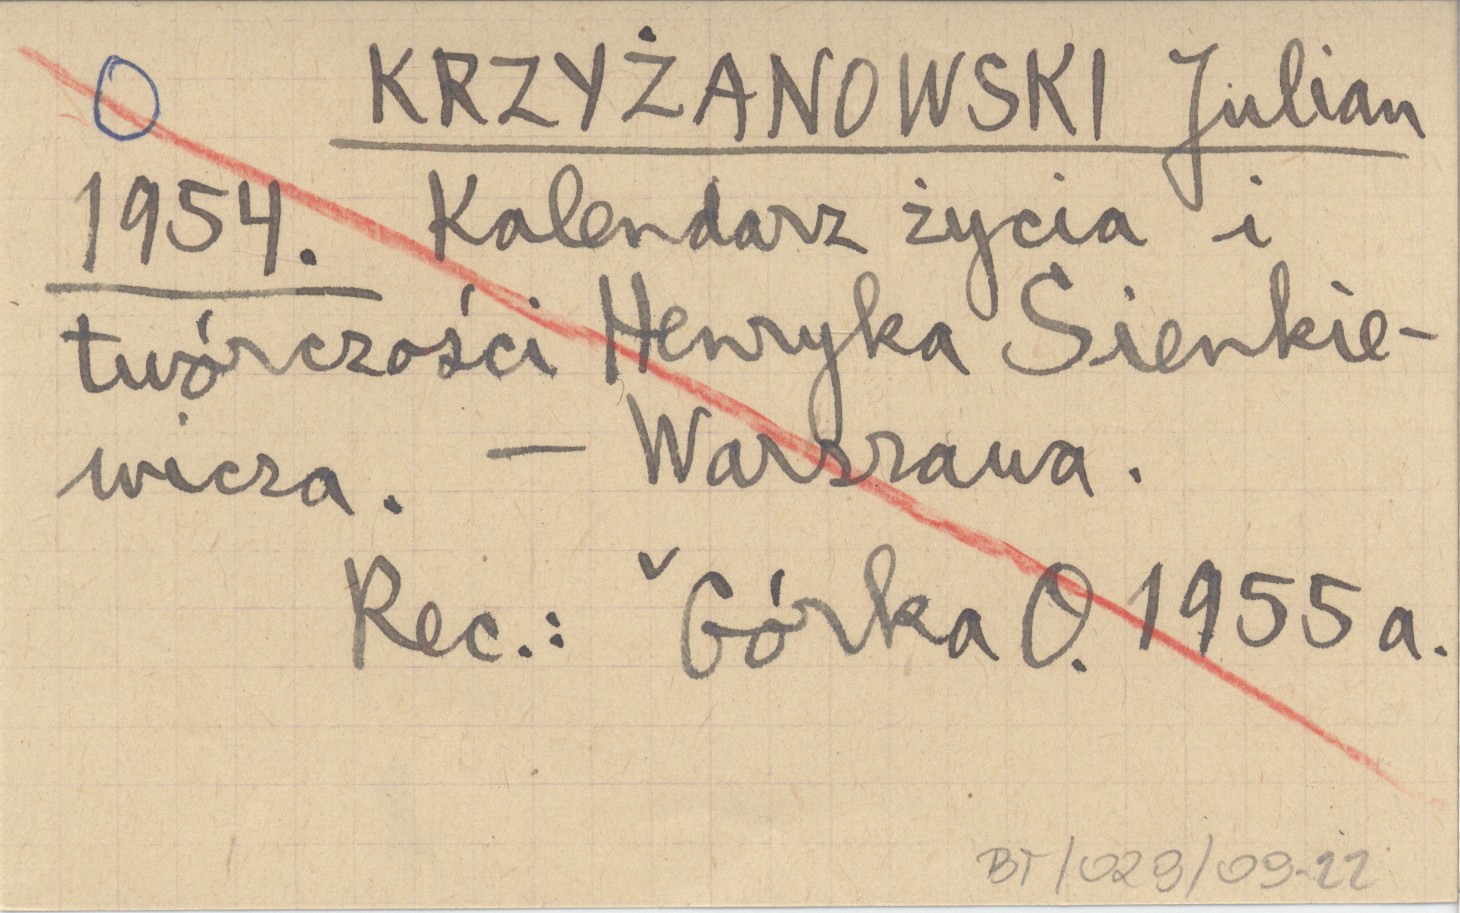 O KRZYŻANOWSKI Julian
1954. Kalendarz życia i
twórczości Henryka Sienkie-
wicza. — Warszawa.
Rec.: ˇGórka O. 1955 a.
BT/029/09-22